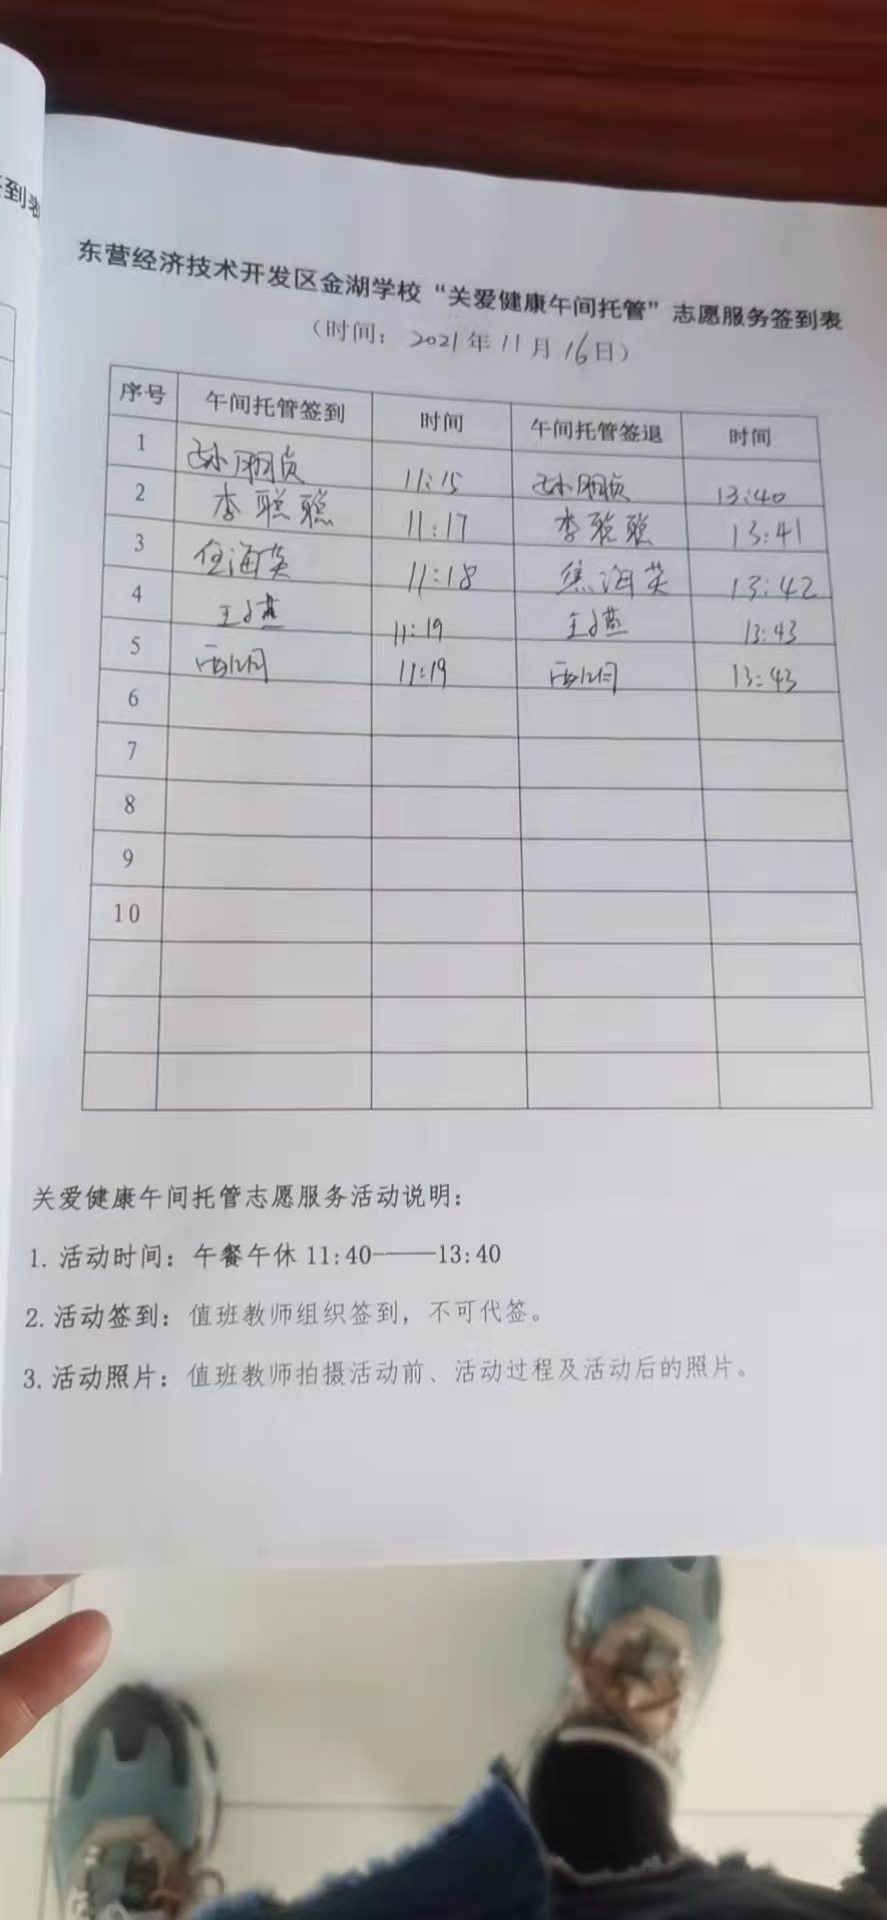 到表
东营经济技术开发区金湖学校“关爱健康午间托管”志愿服务签到表
（时间：2021年11月16日）
序号 午间托管签到 时间 午间托管签退 时间
1 11:15 13:40
2 李聪聪 11:17 李聪聪 13:41
3 海英 11:18 焦海英 13:42
4 王燕 11:19 王燕 13:43
5 11:19 13:43
6
7
8
9
10
关爱健康午间托管志愿服务活动说明：
1. 活动时间：午餐午休 11:40——13:40
2. 活动签到：值班教师组织签到，不可代签。
3. 活动照片：值班教师拍摄活动前、活动过程及活动后的照片。